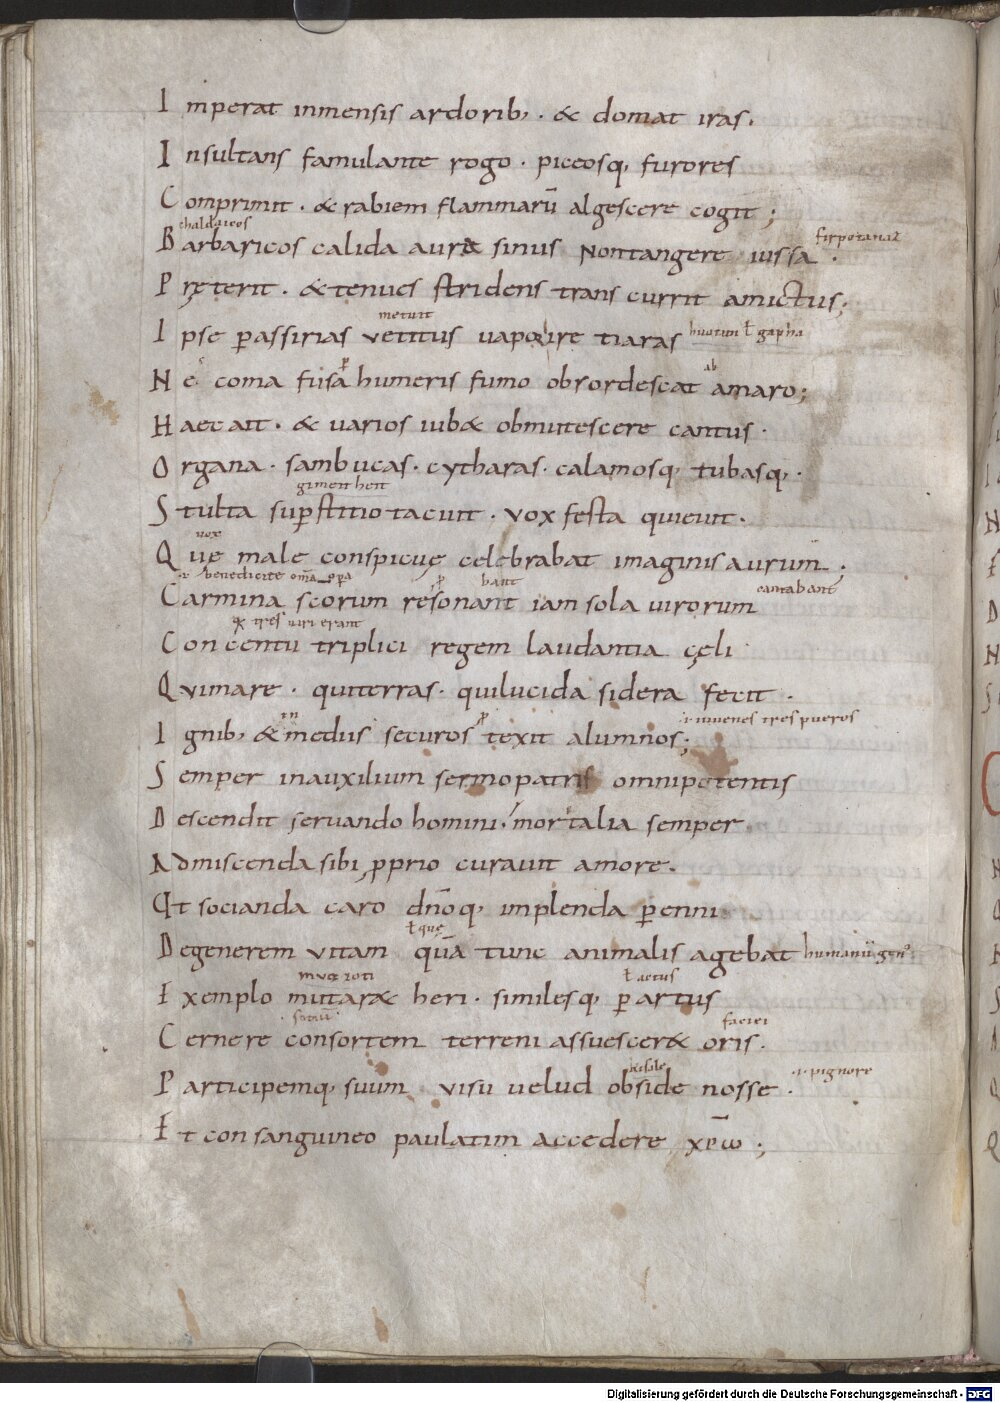 Imperat inmensis ardorib; · & domat iras.
Insultans famulante rogo · piceosq; furores
Comprimit · & rabiem flammarū algescere cogit ;
chaldaicos
Barbaricos calida auræ sinus Non tangere iussa ·
firpotanaz
Pręterit · & tenues stridens trans currit amictus;
metuit
Ipse p assirias vetitus vaporire tiaras huotun ł gapha
p ab
Ne coma fusa humeris fumo obsordescat amaro;
Haec ait · & varios iub& obmutescere cantus ·
Organa · sambucas · cytharas · calamosq; tubasq; ·
gimeitheit
Stulta supstitio tacuit · vox festa quieuit ·
uox
Quę male conspicuę celebrabat imaginis aurum ;
·i· benedicite om̄a opa p bant cantabant
Carmina scorum resonant iam sola uirorum
q tres uiri erant
Concentu triplici regem laudantia cęli
Qui mare · qui terras · qui lucida sidera fecit ·
in p ·i· iuuenes tres pueros
Ignib; & medus securos texit alumnos;
Semper in auxilium sermo patris omnipotentis
Descendit seruando homini · mortalia semper
Admiscenda sibi pprio curauit amore ·
Et socianda caro dn̄oq; implenda perenni
ł que
Degenerem vitam quā tunc animalis agebat humanū gen;
muozoti ł actus
Exemplo mutar& heri · similesq; p artus
faciei
Cernere consortem terreni assuescer& oris ·
kisile ·i· pignore
Participemq; suum visu uelud obside nosse ·
Et consanguineo paulatim accedere xp̄ω ;
Digitalisierung gefördert durch die Deutsche Forschungsgemeinschaft - DFG